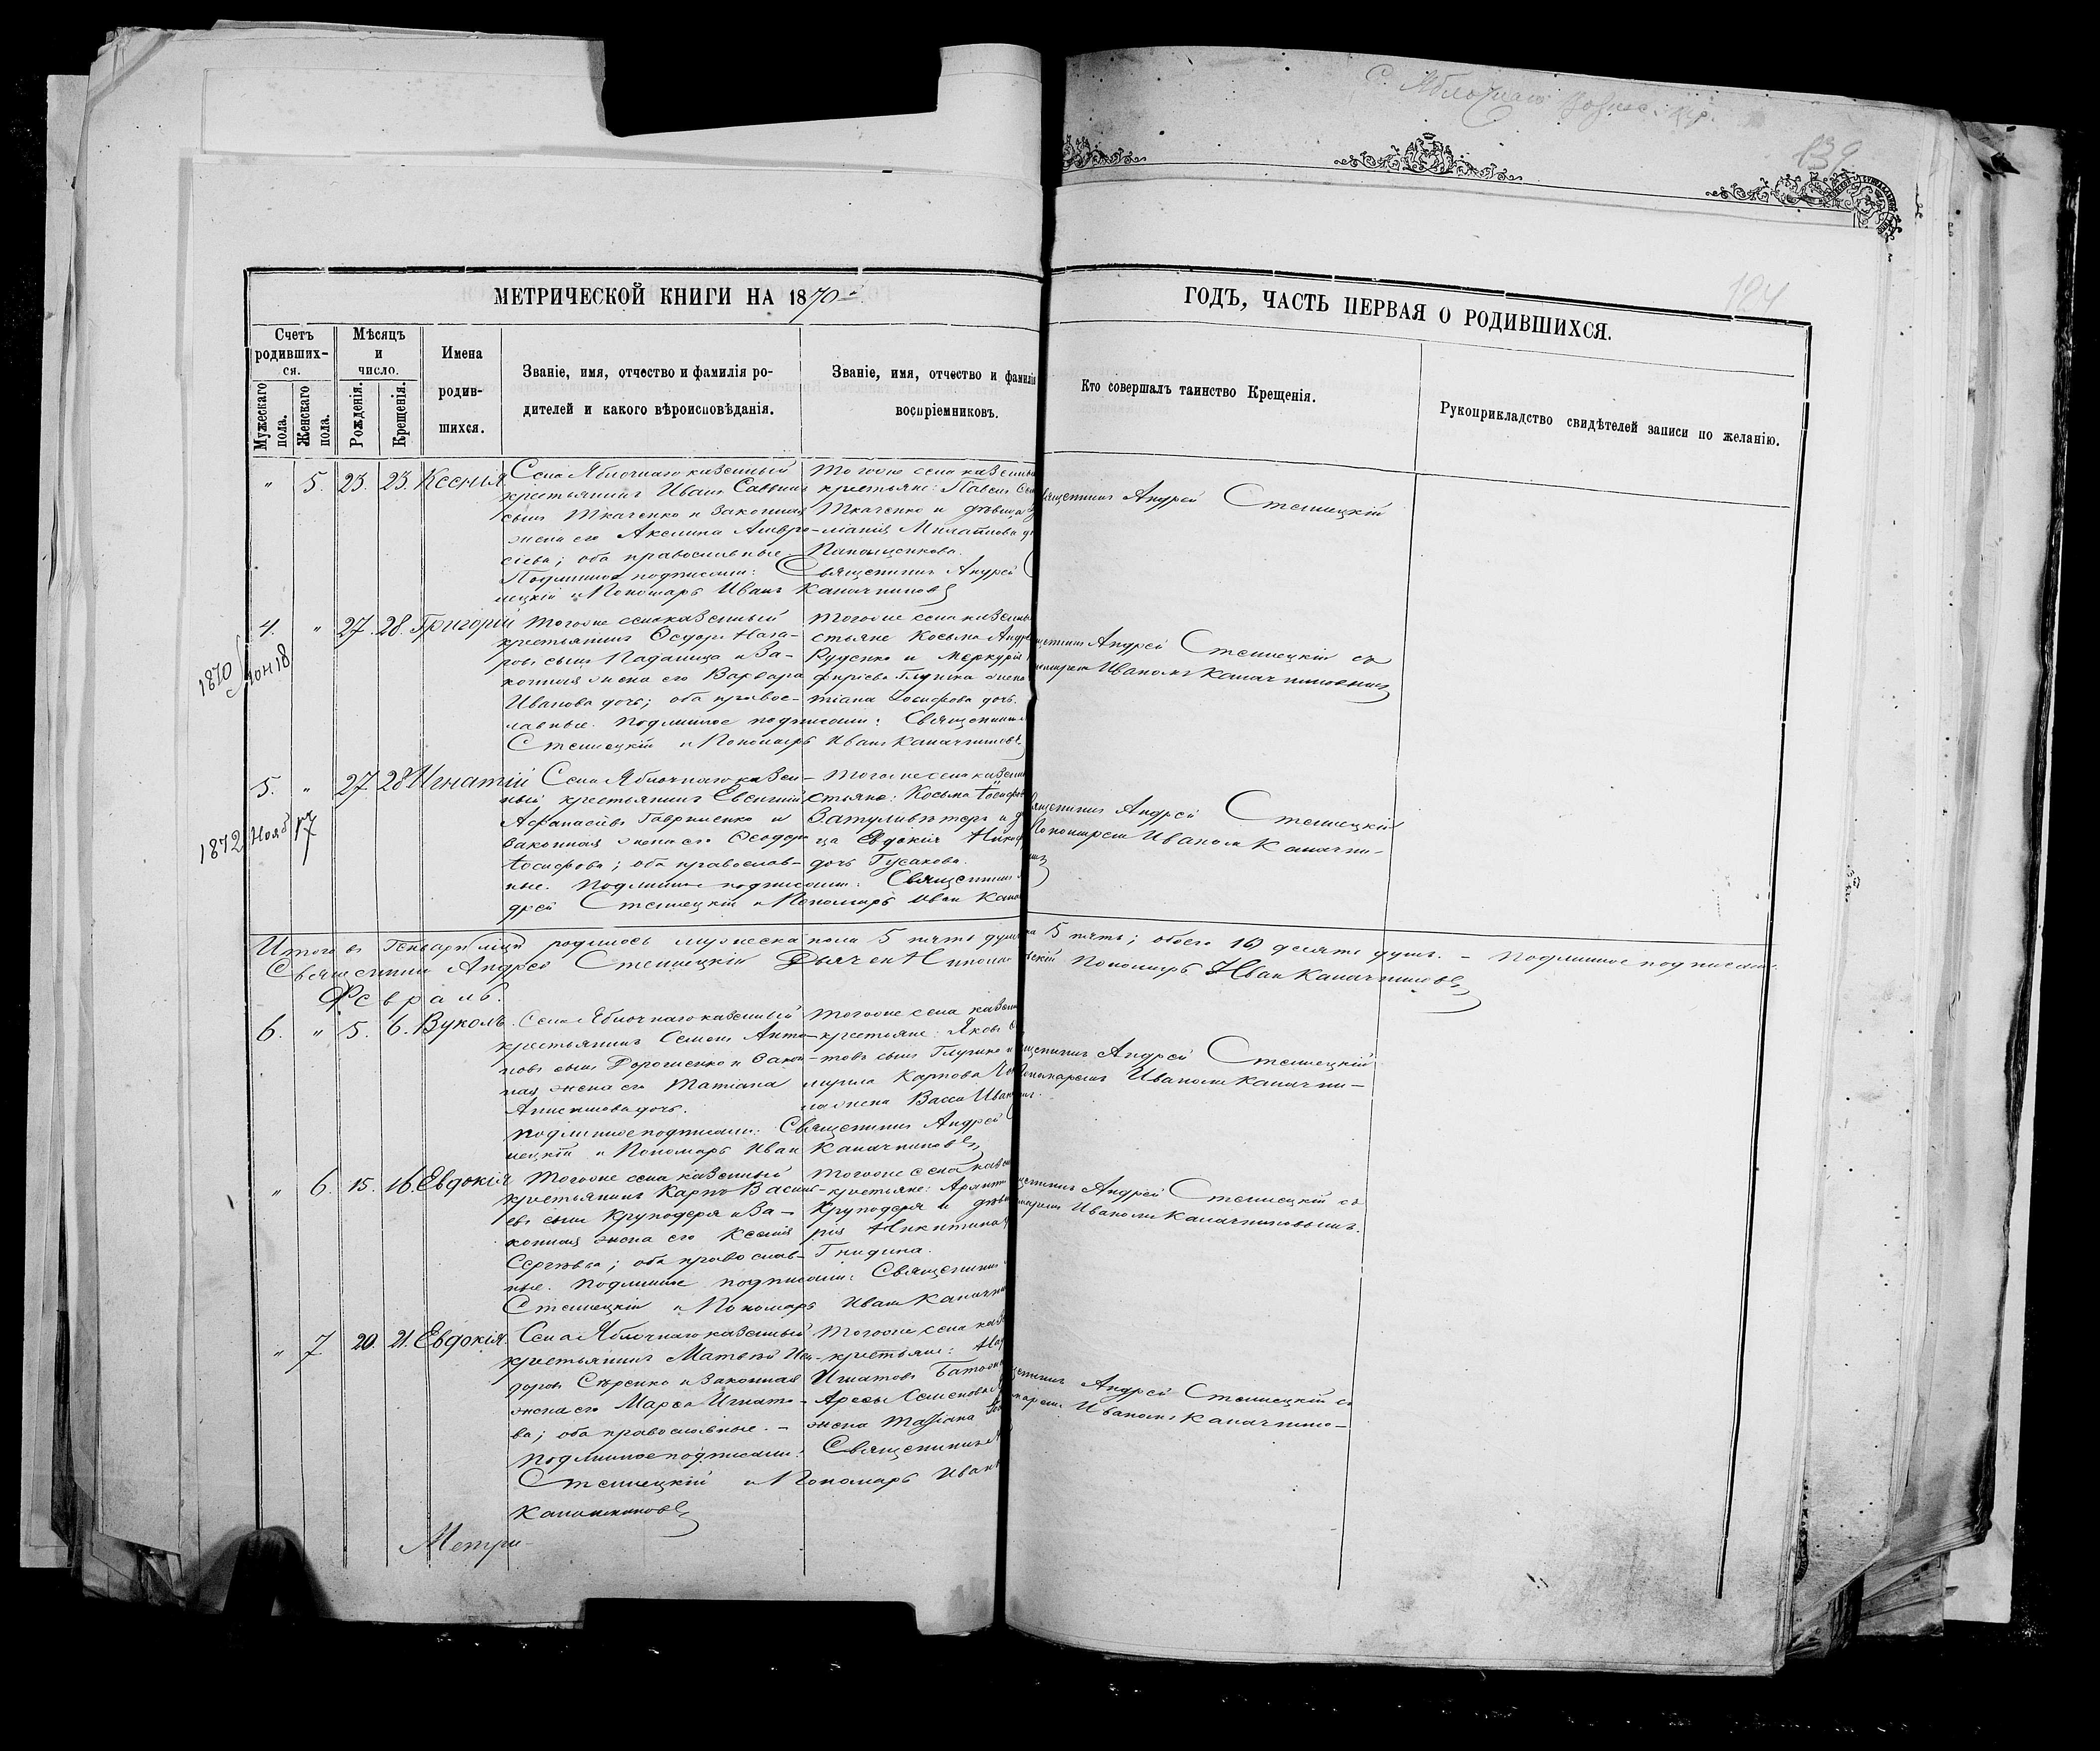 С. Яблочнаго Вознес. цер.
139
124
МЕТРИЧЕСКОЙ КНИГИ НА 1870 й
ГОДЪ, ЧАСТЬ ПЕРВАЯ О РОДИВШИХСЯ.
Счетъ родивших-ся.
Мужескаго пола.
Женскаго пола.
Мѣсяцъ и число.
Рожденія.
Крещенія.
Имена родив-шихся.
Званіе, имя, отчество и фамилія ро-
дителей и какого вѣроисповѣданія.
Званіе, имя, отчество и фамилія
воспріемниковъ.
Кто совершалъ таинство Крещенія.
Рукоприкладство свидѣтелей записи по желанію.
" 5. 23. 23. Ксенія
Села Яблочнаго казенный
крестьянинъ Иванъ Саввинъ
сынъ Ткаченко и законная
жена его Акелина Амвро-
сіева; оба православные.
Подлинное подписали: Священникъ Андрей
лецкій и Пономарь Иванъ Калачниковъ
Тогоже села казенны
крестьяне: Павелъ
Ткаченко и девица
Папанценкова.
Священникъ Андрей Стеллецкій
4. " 27. 28. Григорій
1870 Іюн 18
Тогоже села казенный
крестьянинъ Ѳедоръ Наза-
ровъ сынъ Падалица и за-
конная жена его Варвара
Иванова дочь; оба правос-
лавные. Подлинное подписали: Священникъ
Стеллецкій и Пономарь Иванъ Калачниковъ
Тогоже села казенны
стьяне Косьма Андре
Руденко и Меркурія
жена
тіана Іосифова дочь.
щенникъ Андрей Стеллецкій съ
номаремъ Иваномъ Калачниковымъ
5. " 27. 28 Игнатій
1872 Нояб 17
Села Яблочнаго казен-
ный крестьянинъ Евсигній
Афанасіевъ Гавриленко и
законная жена его Ѳеодора
Іосифова; оба православ-
ные. Подлинное подписали: Священникъ
дрей Стеллецкій и Пономарь Иван Кала
Тогоже села казенн
стьяне: Косьма Іосифов
Затуливѣтеръ и д
ца Евдокія Никиф
дочь Гусакова.
Священникъ Андрей Стеллецкій
Пономаремъ Иваномъ Калачни-
Итого въ Генварѣ м-цѣ родилось мужеска пола 5 пять душъ 5 пять; обоего 10 десять душъ. – Подлинное подписали:
Священникъ Андрей Стеллецкій Дьячекъ Пономарь Иван Калачниковъ
Февраль.
6. " 5. 6. Вуколъ.
Села Яблочнаго казенный
крестьянинъ Семенъ Анто-
новъ сынъ Дорошенко и закон-
ная жена его Татіана
дочь.
Подлинное подписали: Священникъ Андрей
лецкій и Пономарь Иван Калачниковъ
Тогоже села казенн
крестьяне: Яковъ
товъ сынъ Глушко и
Карпова
жена Васса Иван
щенникъ Андрей Стеллецкій
Пономаремъ Иваномъ Калачни-
" 6. 15. 16. Евдокія
Тогоже села казенный
крестьянинъ Карпъ Василь-
евъ сынъ Круподеря и за-
конная жена его Ксенія
Сергѣева; оба православ-
ные. Подлинное подписали: Священникъ
Стеллецкій и Пономарь Иван Калачни
Тогоже села казен
крестьяне:
Круподеря и дѣви
рія Никитина
Гнидина.
щенникъ Андрей Стеллецкій съ
номаремъ Иваномъ Калачниковымъ.
" 7 20. 21. Евдокія.
Села Яблочнаго казенный
крестьянинъ Матвѣй Иси-
доровъ Сѣренко и законная
жена его Марѳа Игнато-
ва; оба православные. –
Подлинное подписали: Священникъ А
Стеллецкій и Пономарь Иванъ
Калачниковъ
Тогоже села каз
крестьяне:
Игнатовъ
Семеновы
жена Татіана
щенникъ Андрей Стеллецкій съ
маремъ Иваномъ Калачнико-
Метри-